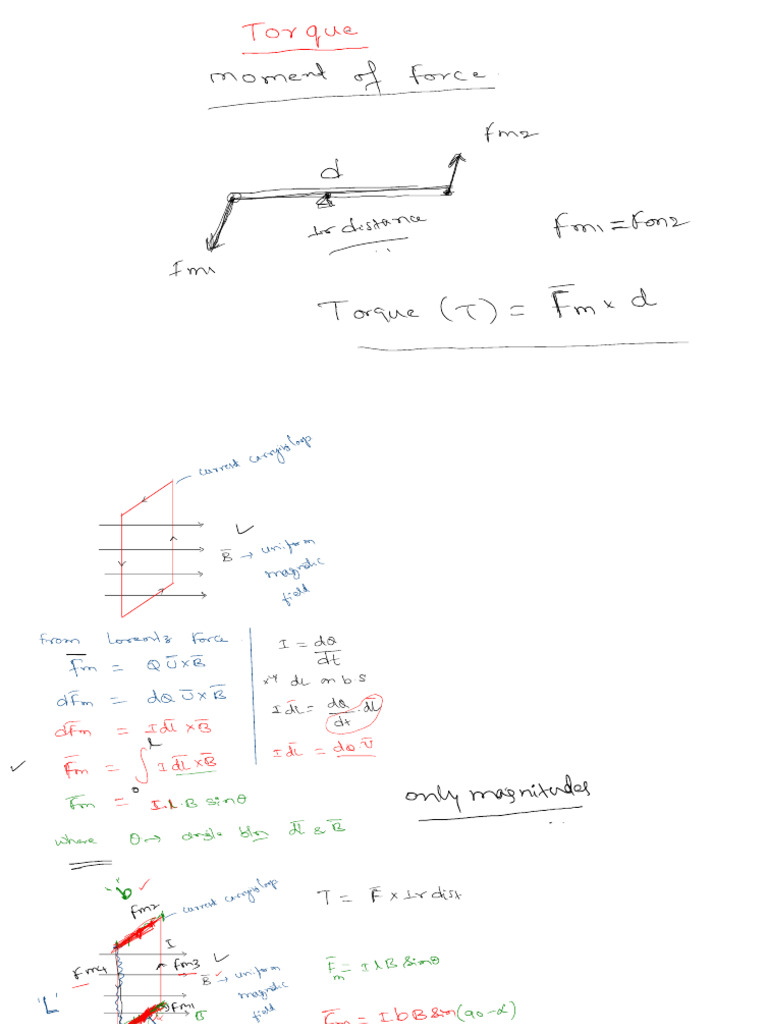 Torque
moment of force
Fm2
d
⊥r distance
Fm1
Fm1 = Fm2
Torque (T) = F̅m × d
current carrying loop
B̅ → uniform
magnetic
field
from Lorentz Force
F̅m = Q U̅ × B̅
dF̅m = dQ U̅ × B̅
dF̅m = I dl̅ × B̅
F̅m = ∫₀ᴸ I dl̅ × B̅
F̅m = I.l.B sinθ
where θ → angle b/n dl̅ & B̅
I = dQ/dt
xly dl on b s
I dl̅ = dQ/dt . dl̅
I dl̅ = dQ U̅
only magnitudes
"b"
Fm2
current carrying loop
I
Fm4
Fm3
B̅ → uniform
magnetic
field
"L"
Fm1
B̅
T = F̅ × ⊥r dist
F̅m = I l B sinθ
F̅m = I b B sin(90-α)